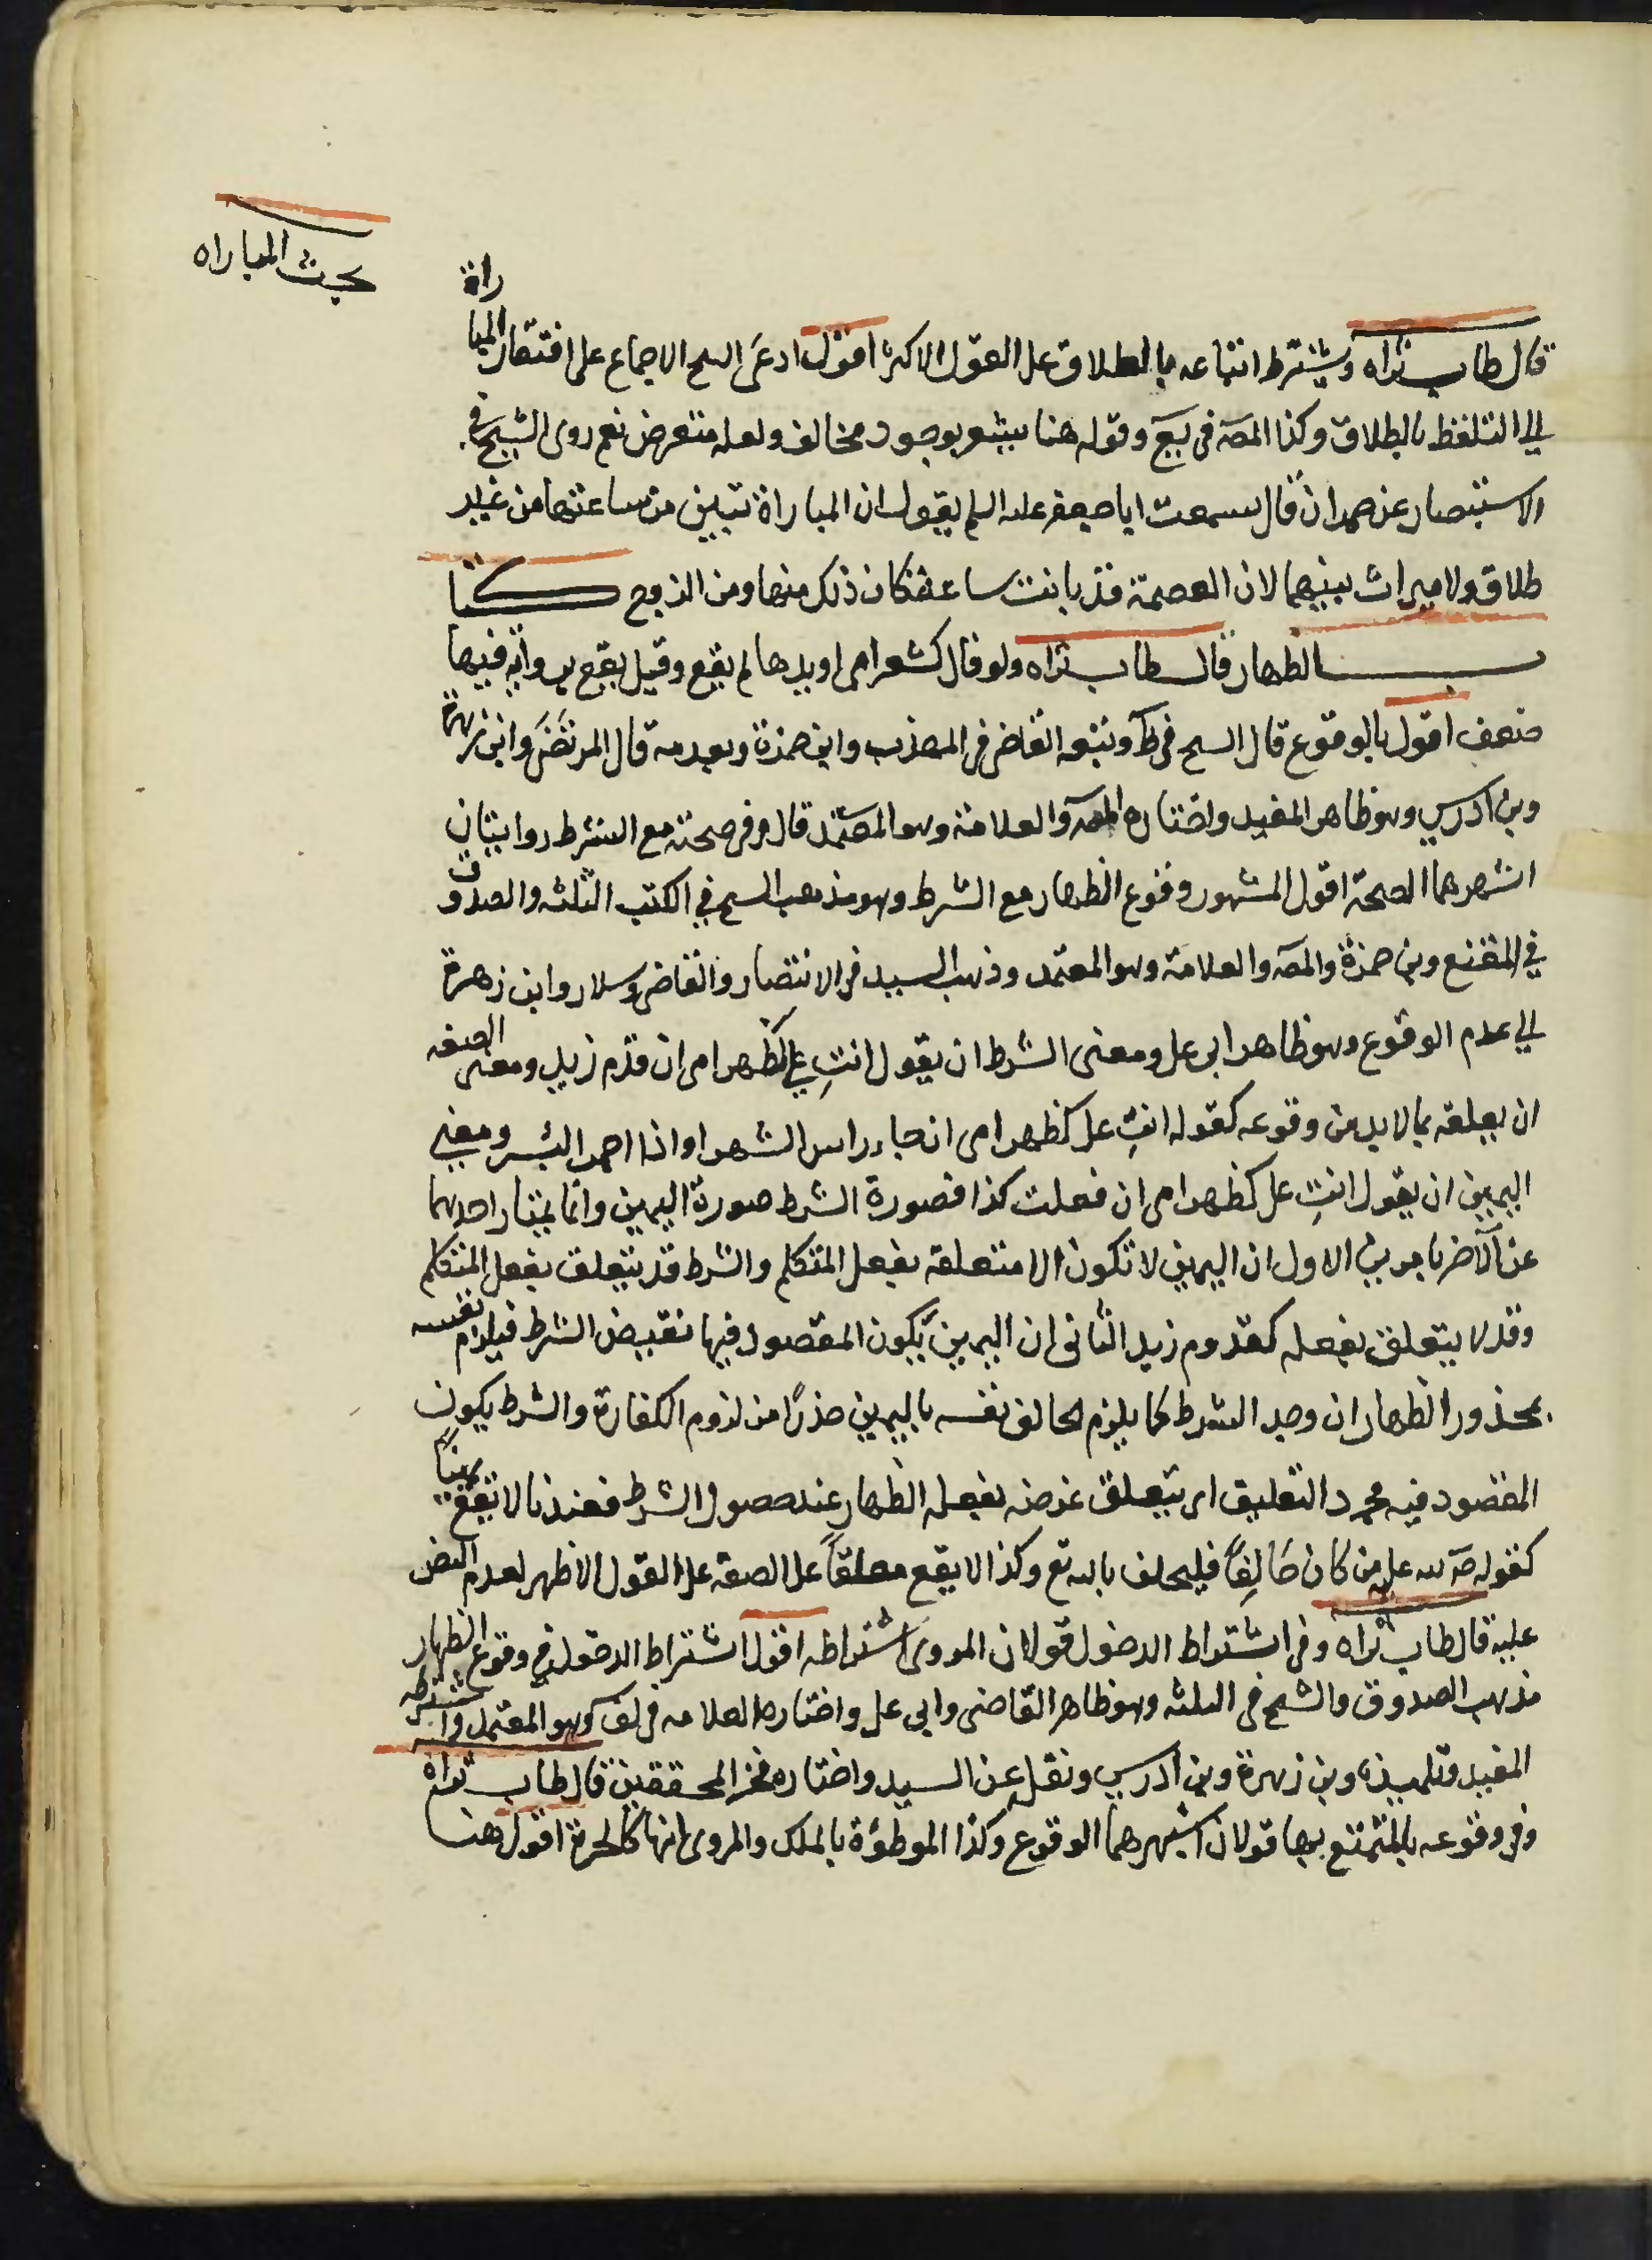 بحث المباراه
قال طاب ثراه ويشترط اتباعه بالطلاق على القول الاكثر اقول ادعى الشيخ الاجماع على افتقار المباراة
الى التلفظ بالطلاق وكذا المصه فى يع وقوله هنا يشعر بوجود مخالف ولعله منقرض نعم روى الشيخ فى
الاستبصار عن حمران قال سمعت ابا جعفر عليه السلم يقول ان المباراة تبين من ساعتها من غير
طلاق ولا ميراث بينهما لان العصمة قد بانت ساعة كان ذلك منها ومن الزوج كتا
ب الظهار قال طاب ثراه ولو قال كشعر امى او يدها لم يقع وقيل يقع برواية فيها
ضعف اقول بالوقوع قال الشيخ فى ط وتبعه القاضى فى المهذب وابن حمزة وبعدمه قال المرتضى وابن زهرة
وبن ادريس وهو ظاهر المفيد واختاره المصه والعلامة وهو المعتمد قال وفى صحته مع الشرط روايتان
اشهرهما الصحة اقول المشهور وقوع الظهار مع الشرط وهو مذهب الشيخ في الكتب الثلثه والصدوق
في المقنع وبن حمزة والمصه والعلامة وهو المعتمد وذهب السيد فى الانتصار والقاضى وسلار وابن زهرة
الى عدم الوقوع وهو ظاهر ابى على ومعنى الشرط ان يقول انتِ على كظهر امى ان قدم زيد ومعنى الصفه
ان يعلقه بما لابد من وقوعه كقوله انتِ على كظهر امى ان جاء راس الشهر او اذا احمر البسر ومعنى
اليمين ان يقول انتِ على كظهر امى ان فعلت كذا فصورة الشرط صورة اليمين وانما يمتاز احدهما
عن الآخر بامرين الاول ان اليمين لا تكون الا متعلقه بفعل المتكلم والشرط قد يتعلق بفعل المتكلم
وقد لا يتعلق بفعله كقدوم زيد الثانى ان اليمين يكون المقصود فيها نقيض الشرط فيلزم نفسه
بمحذور الظهار ان وجد الشرط كما يلزم الحالف نفسه باليمين حذرًا من لزوم الكفارة والشرط يكون
المقصود فيه مجرد التعليق اى يتعلق غرضه بفعله الظهار عند حصول الشرط فعندنا لا يقع يمينًا
كقوله صه لله عليه من كان حَالِفًا فليحلف بالله تع وكذا لا يقع معلقًا على الصفة على القول الاظهر لعدم النص
عليه قال طاب ثراه وفى اشتراط الدخول قولان المروى اشتراطه اقول اشتراط الدخول في وقوع الظهار
مذهب الصدوق والشيخ فى الثلثه وهو ظاهر القاضى وابى على واختاره العلامه فى لف وهو المعتمد
المفيد وتلميذه وبن زهرة وبن ادريس ونقل عن السيد واختاره فخر المحققين قال طاب ثراه
وفى وقوعه بالمتمتع بها قولان اشهرهما الوقوع وكذا الموطؤة بالملك والمروى انها كالحرة اقول هنا